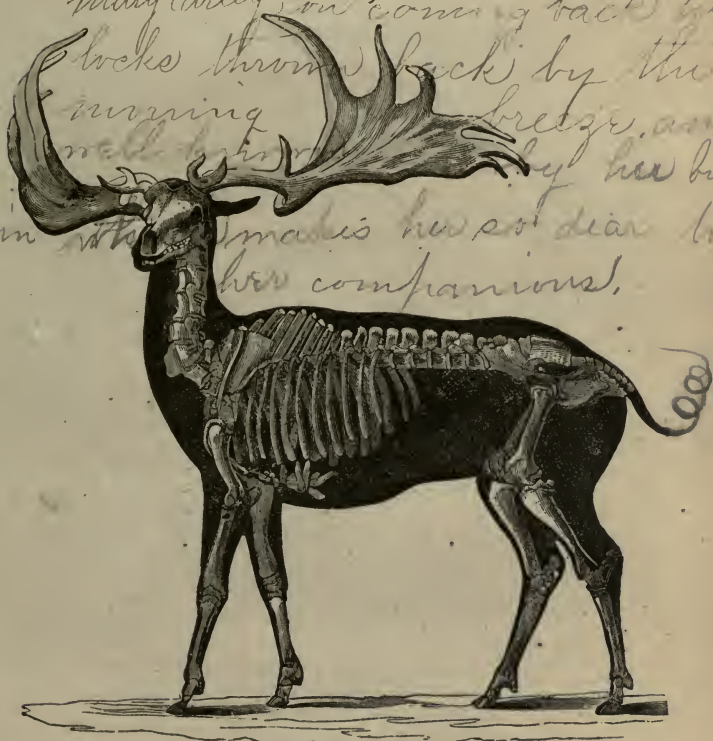 on coming back
locks thrown back by the
morning breeze, an
by her b
in makes her so dear to
her companions.